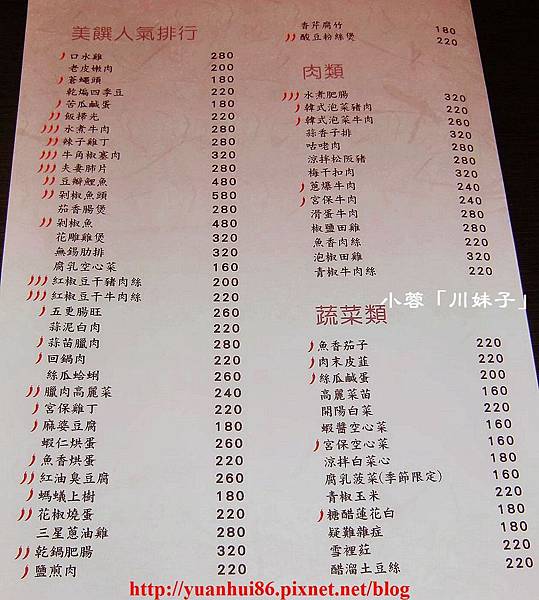 美饌人氣排行
口水雞 280
老皮嫩肉 200
蒼蠅頭 180
乾煸四季豆 220
苦瓜鹹蛋 180
飯掃光 220
水煮牛肉 280
辣子雞丁 280
牛角椒塞肉 320
夫妻肺片 280
豆瓣鯉魚 480
剁椒魚頭 580
茄香腸煲 280
剁椒魚 480
花雕雞煲 320
無錫肋排 320
腐乳空心菜 160
紅椒豆干豬肉絲 200
紅椒豆干牛肉絲 220
五更腸旺 260
蒜泥白肉 220
蒜苗臘肉 280
回鍋肉 220
絲瓜蛤蜊 260
臘肉高麗菜 240
宮保雞丁 220
麻婆豆腐 180
蝦仁烘蛋 260
魚香烘蛋 220
紅油臭豆腐 260
螞蟻上樹 180
花椒燒蛋 220
三星蔥油雞 280
乾鍋肥腸 320
鹽煎肉 220
香芹腐竹 180
酸豆粉絲煲 220
肉類
水煮肥腸 320
韓式泡菜豬肉 220
韓式泡菜牛肉 260
蒜香子排 320
咕咾肉 280
涼拌松阪豬 280
梅干扣肉 320
蔥爆牛肉 240
宮保牛肉 240
滑蛋牛肉 280
椒鹽田雞 280
魚香肉絲 220
泡椒田雞 320
青椒牛肉絲 220
小蓉「川妹子」
蔬菜類
魚香茄子 220
肉末皮韮 220
絲瓜鹹蛋 200
高麗菜苗 160
開陽白菜 220
蝦醬空心菜 160
宮保空心菜 160
涼拌白菜心 180
腐乳菠菜(季節限定) 160
青椒玉米 220
糖醋蓮花白 180
疑難雜症 180
雪裡菈 220
醋溜土豆絲 220
http://yuanhui86.pixnet.net/blog